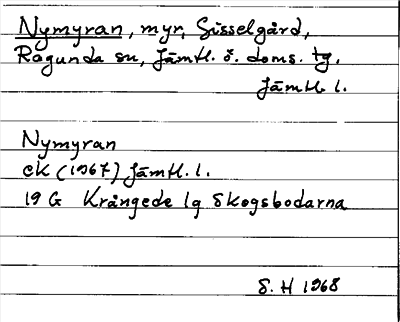 Nymyran, myr, Sisselgård,
Ragunda sn, Jämtl. ö. doms. tg.
Jämtl. l.
Nymyran
ek (1967) Jämtl. l.
19 G Krångede lq Skogsbodarna
S. H 1968